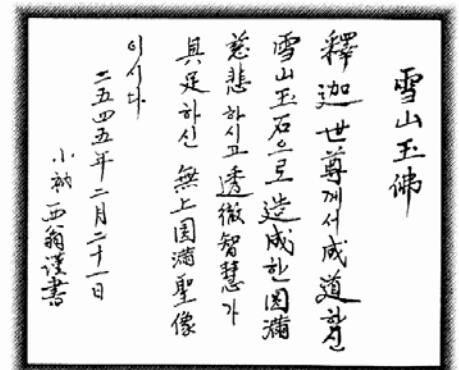 雪山玉佛
釋迦世尊께서 成道하신
雪山玉石으로 造成한 圓滿
慈悲하시고 透徹智慧가
具足하신 無上圓滿聖像
이시다
二五四五年二月二十一日
小衲 西翁謹書